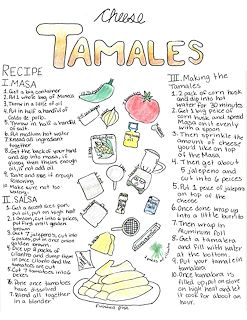 Cheese
TAMALES
RECIPE
I. MASA
1. Get a big container
2. Add 1 whole bag of Masa.
3. Throw in a little of oil
4. Put in half a handful of
Caldo de pollo.
5. Throw in half a handful
of salt.
6. Put medium hot water
7. Spread all ingredient
together
8. Get the back of your hand
and dip into masa, if
glossy then there's enough
oil, if not add oil
9. Taste and see if enough
flavoring
10. Make sure not too
watery.
II. SALSA
1. Get a small pot,
put oil, put on high half
2. 1 onion, cut into 6 pieces,
put first until golden
brown
3. Get 7 jalapeños, cut into
6 pieces, put in once onion
golden brown.
4. Chop up 4 pieces
of cilantro and dump them
in once cilantro and the
tomatoes on cut
5. Cut 7 tomatoes into 6
pieces
6. Wait once tomatoes
have dissolved
7. Blend all together
in a blender.
III. Making the
Tamales
1. Get 2 pack of corn husk
and dip into hot
water for 30 minutes
2. Get 1 big piece of
corn husk and spread
Masa until evenly
with a spoon
3. Then sprinkle the
amount of cheese
you'd like on top
of the Masa.
4. Then get about
5 jalapeño and
cut into 6 pieces
5. Put 1 piece of jalapeño
on top of the
cheese
6. Once done wrap up
into a little bundle
7. Then wrap in
Aluminum foil
8. Get a tamalera
and fill with water
at the bottom.
9. Put your tamale in
tamalera
10. Once tamalera is
filled up put on stove
on high half and let
it cook for about an
hour.